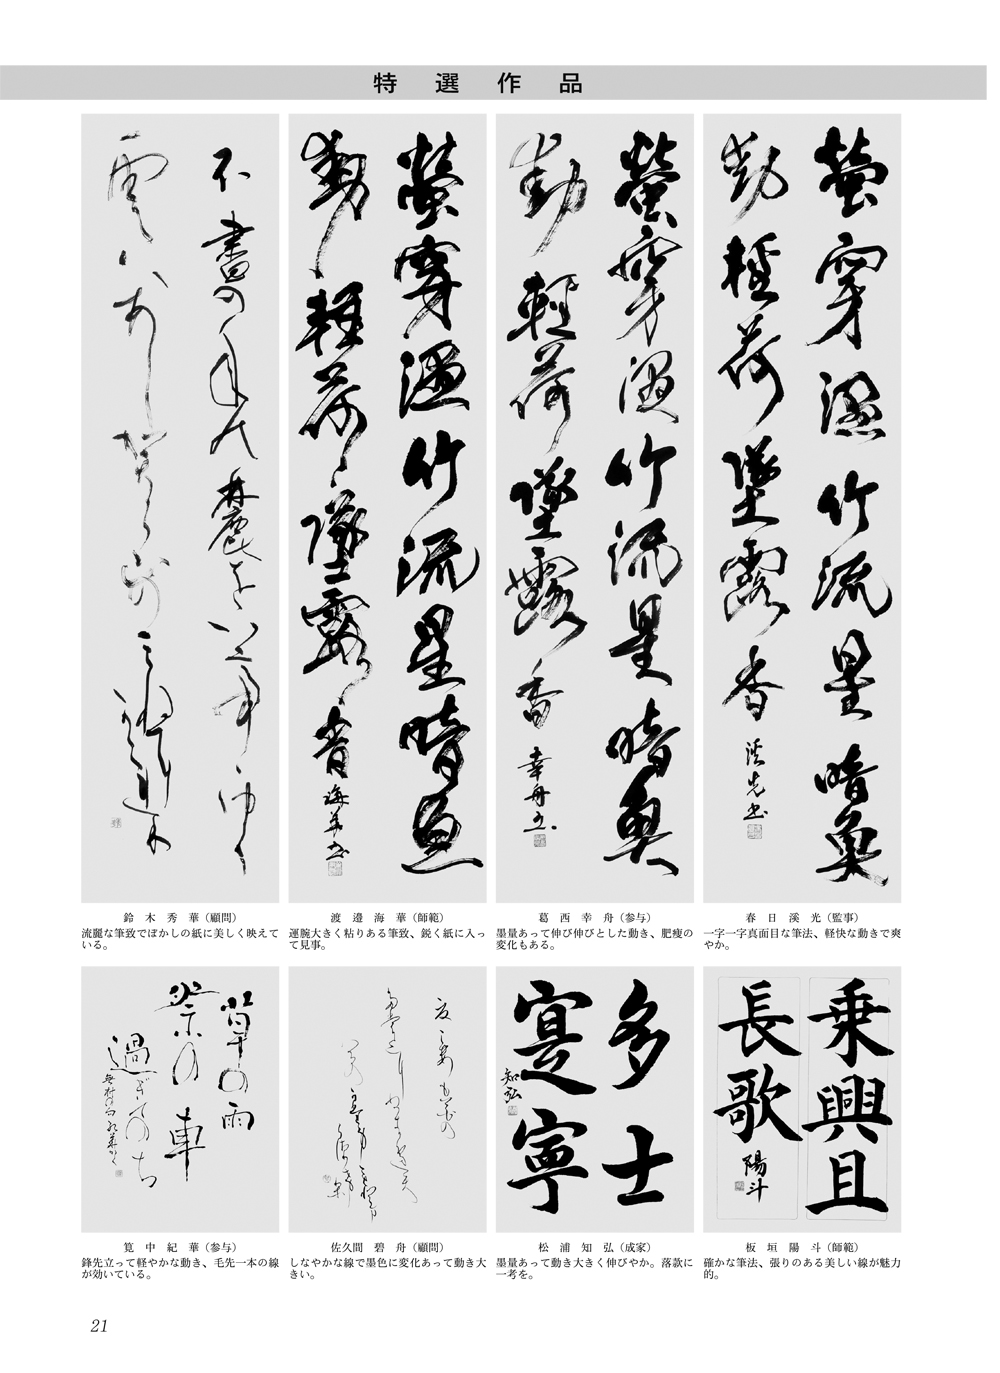 特選作品
螢穿濕竹流星暗魚
動輕荷墜露香
溪光書
螢穿濕竹流星暗魚
動輕荷墜露香
幸舟書
螢穿濕竹流星暗魚
動輕荷墜露香
海華書
鈴木秀華（顧問）
流麗な筆致でぼかしの紙に美しく映えて
いる。
渡邉海華（師範）
運腕大きく粘りある筆致、鋭く紙に入っ
て見事。
葛西幸舟（参与）
墨量あって伸び伸びとした動き、肥痩の
変化もある。
春日溪光（監事）
一字一字真面目な筆法、軽快な動きで爽
やか。
乗興且
長歌
陽斗
多士
寔寧
知弘
草の雨
祭の車
過ぎてのち
筧中紀華（参与）
鋒先立って軽やかな動き、毛先一本の線
が効いている。
佐久間碧舟（顧問）
しなやかな線で墨色に変化あって動き大
きい。
松浦知弘（成家）
墨量あって動き大きく伸びやか。落款に
一考を。
板垣陽斗（師範）
確かな筆法、張りのある美しい線が魅力
的。
21